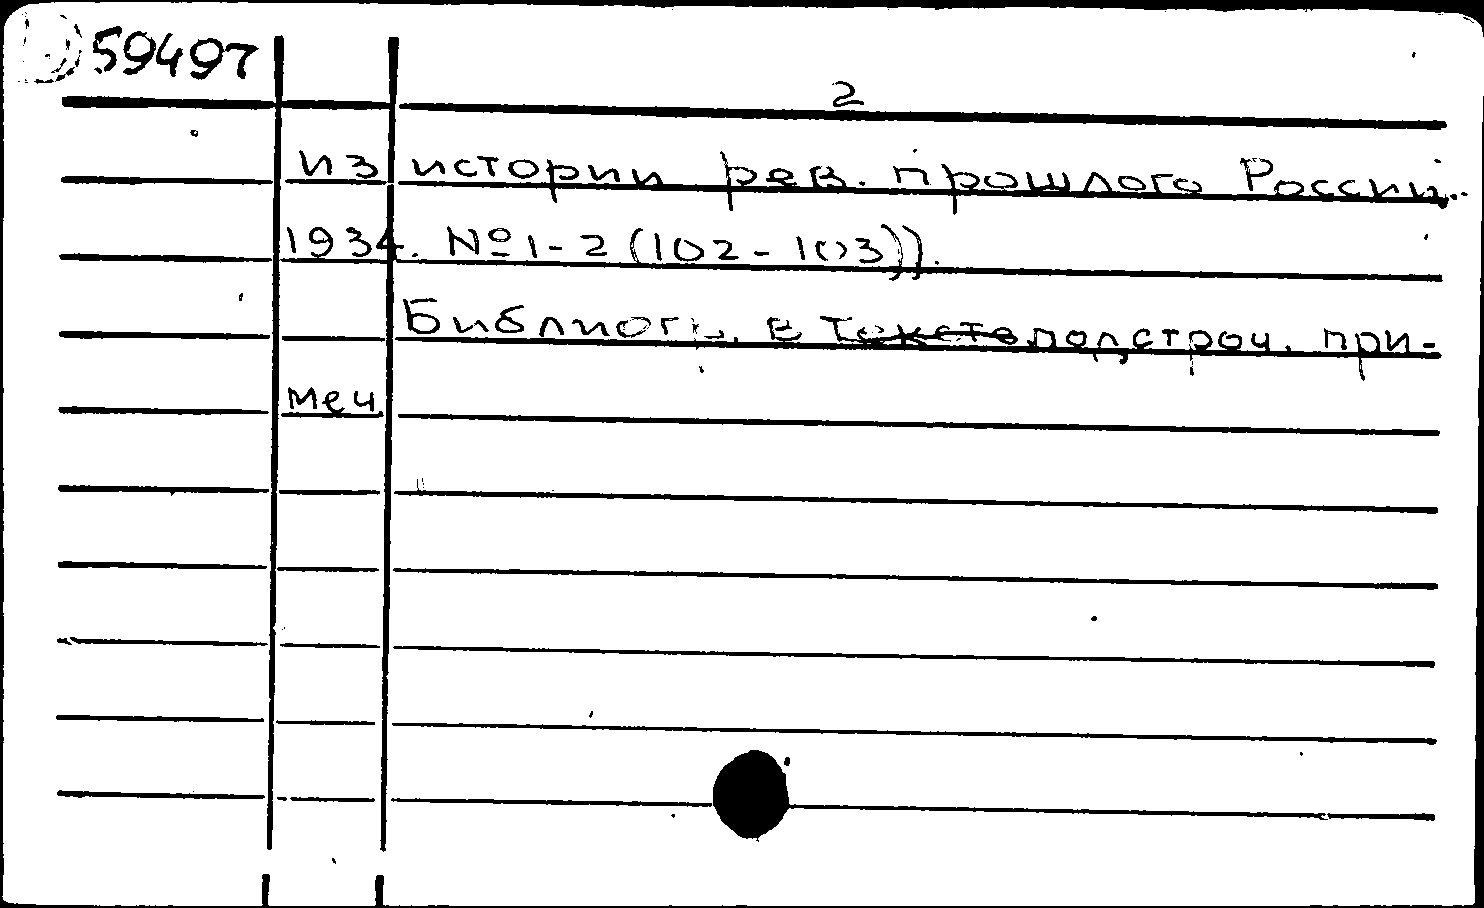 59497
2
из истории рев. прошлого России.
1934. № 1-2 (102-103)).
Библиогр. в подстроч. при-
меч